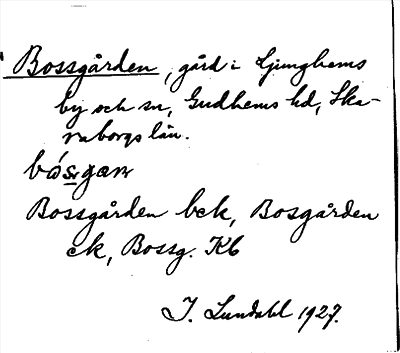 Bossgården, gård i Ljunghems
by och sn, Gudhems hd, Ska-
raborgs län.
Bossgården bek, Bosgården
ek, Bossg. Kb
I. Lundahl 1927.